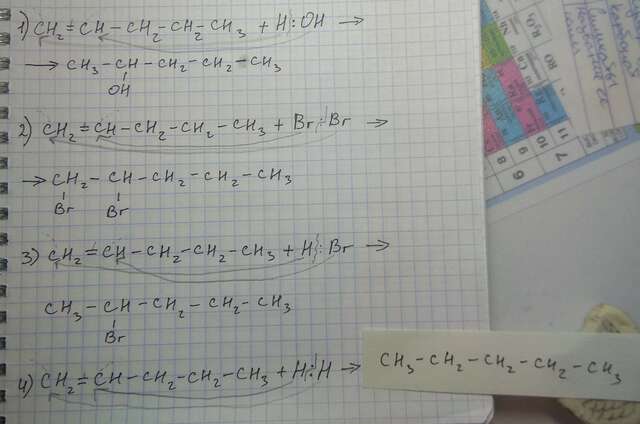 1) CH₂=CH-CH₂-CH₂-CH₃ + H:OH →
→ CH₃-CH-CH₂-CH₂-CH₃
OH
2) CH₂=CH-CH₂-CH₂-CH₃ + Br:Br →
→ CH₂-CH-CH₂-CH₂-CH₃
Br Br
3) CH₂=CH-CH₂-CH₂-CH₃ + H:Br →
CH₃-CH-CH₂-CH₂-CH₃
Br
4) CH₂=CH-CH₂-CH₂-CH₃ + H:H → CH₃-CH₂-CH₂-CH₂-CH₃
R₂O₇
RO
11
7
10
9
6
8